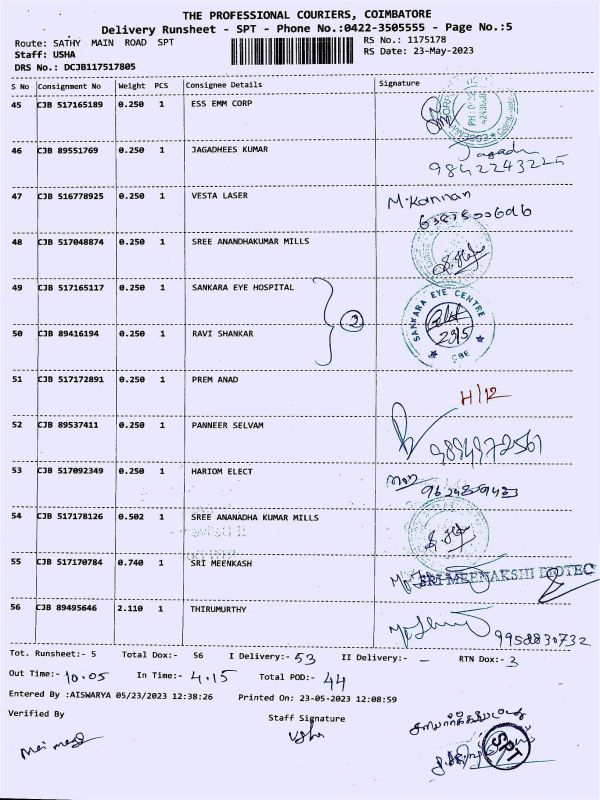 THE PROFESSIONAL COURIERS, COIMBATORE
Delivery Runsheet - SPT - Phone No.:0422-3505555 - Page No.:5
Route: SATHY MAIN ROAD SPT RS No.: 1175178
Staff: USHA RS Date: 23-May-2023
DRS No.: DCJB117517805
S No Consignment No Weight PCS Consignee Details Signature
45 CJB 517165189 0.250 1 ESS EMM CORP
46 CJB 89551769 0.250 1 JAGADHEES KUMAR
9842243225
47 CJB 516778925 0.250 1 VESTA LASER M.Kannan
48 CJB 517048874 0.250 1 SREE ANANDHAKUMAR MILLS
49 CJB 517165117 0.250 1 SANKARA EYE HOSPITAL
2 SANKARA EYE CENTRE CBE
50 CJB 89416194 0.250 1 RAVI SHANKAR
51 CJB 517172891 0.250 1 PREM ANAD
H/12
52 CJB 89537411 0.250 1 PANNEER SELVAM
53 CJB 517092349 0.250 1 HARIOM ELECT
54 CJB 517178126 0.502 1 SREE ANANADHA KUMAR MILLS
55 CJB 517170784 0.740 1 SRI MEENKASH
SRI MEENAKSHI BIOTEC
56 CJB 89495646 2.110 1 THIRUMURTHY
9958830732
Tot. Runsheet:- 5 Total Dox:- 56 I Delivery:- 53 II Delivery:- - RTN Dox:- 3
Out Time:- 10.05 In Time:- 4.15 Total POD:- 44
Entered By :AISWARYA 05/23/2023 12:38:26 Printed On: 23-05-2023 12:08:59
Verified By Staff Signature
usha
SPT